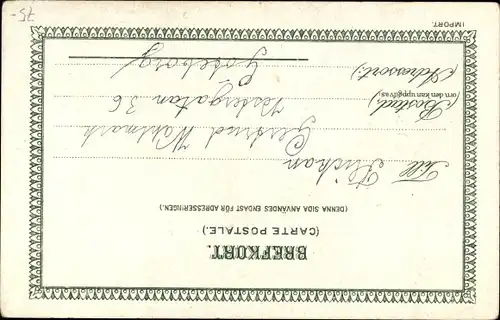 BREFKORT.
(CARTE POSTALE.)
(DENNA SIDA ANVÄNDES ENDAST FÖR ADRESSERINGEN.)
Till Fröken
Gertrud Wahlmark
Vestergatan 36
(Bostad:)
(om den kan uppgifvas)
Göteborg
(Adressort:)
IMPORT.
75-